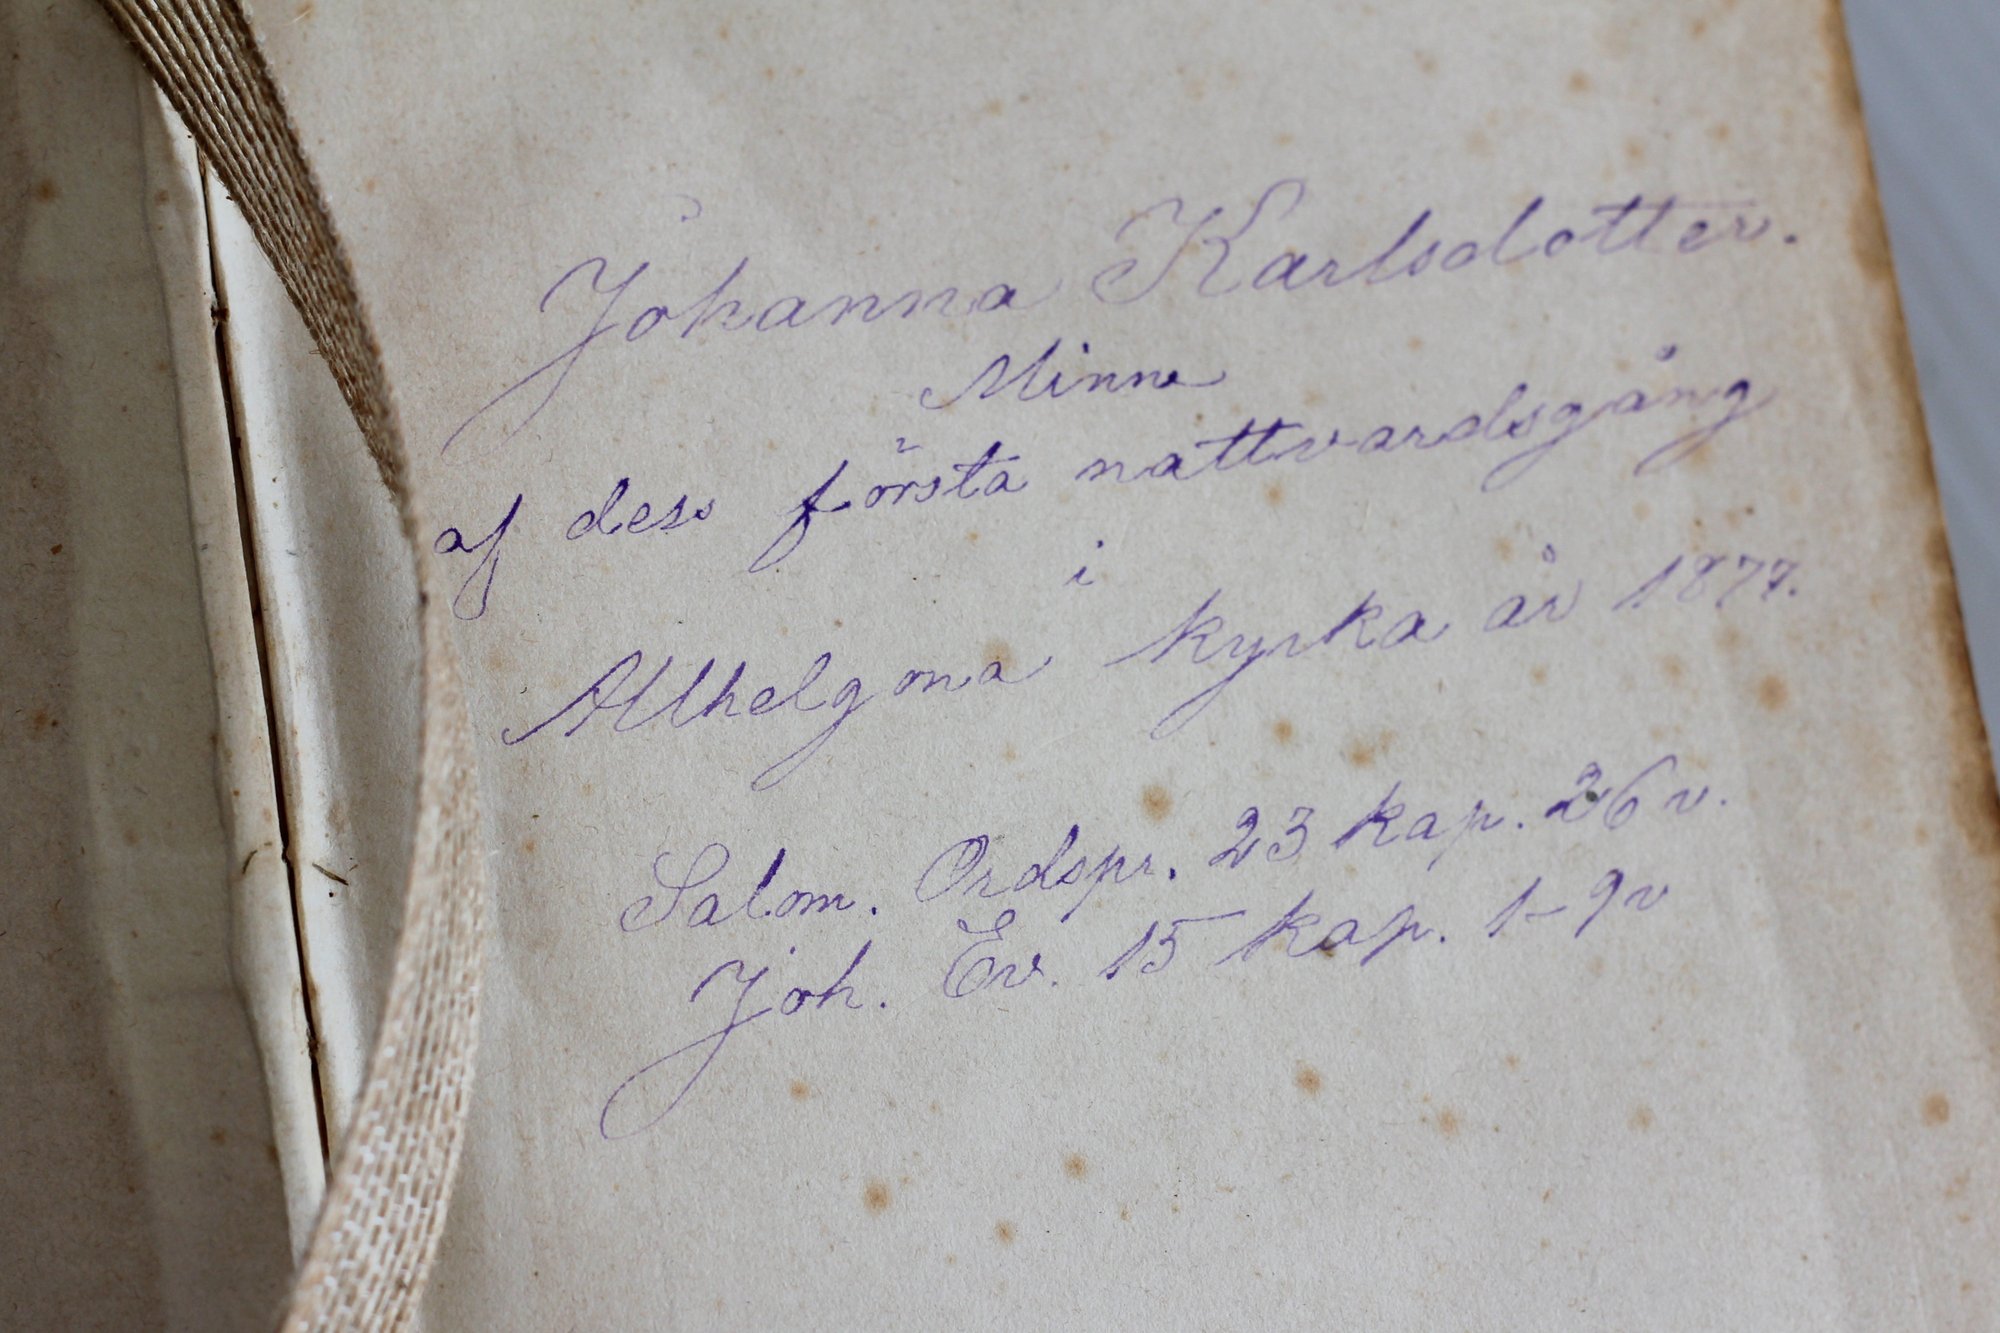 Johanna Karlsdotter.
Minne
af dess första nattvardsgång
i
Allhelgona kyrka år 1877.
Salom. Ordspr. 23 kap. 26 v.
Joh. Ev. 15 kap. 1-9 v